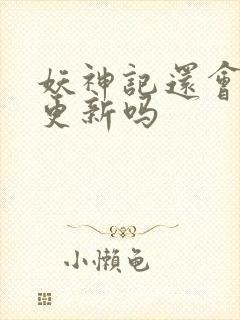 妖神記還會
更新吗
小懶龟